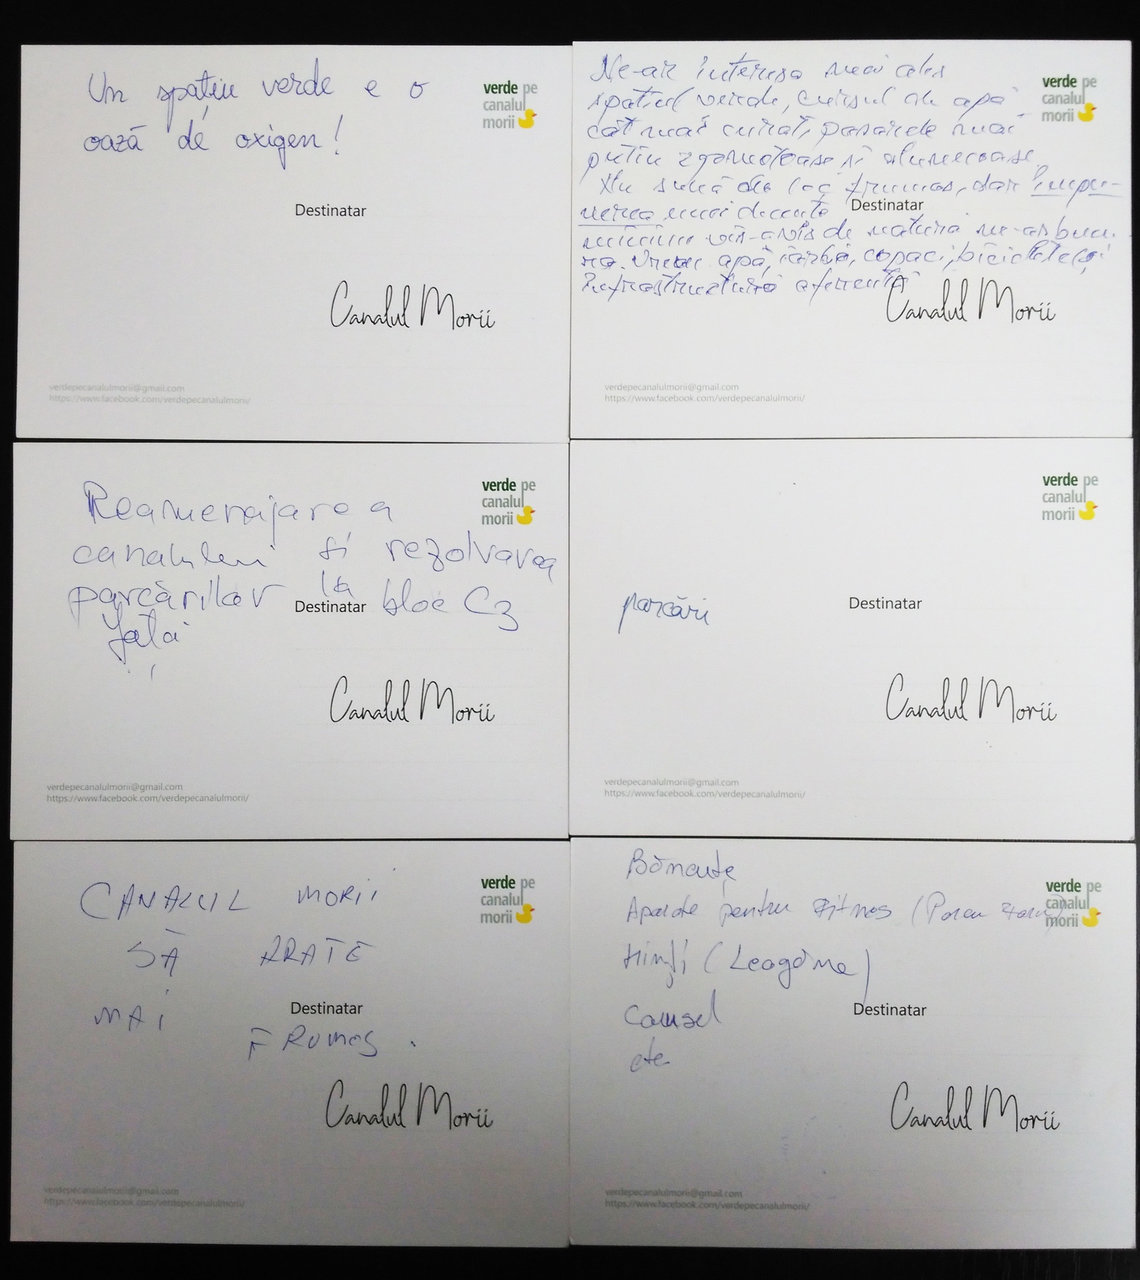 Un spațiu verde e o
oază de oxigen!
verde pe
canalul
morii
Destinatar
Canalul Morii
verdepecanalulmorii@gmail.com
https://www.facebook.com/verdepecanalulmorii/
Ne-ar interesa mai ales
spațiul verde, cursul de apă
cât mai curat, podurile mai
puțin zgomotoase și alunecoase.
Nu sună deloc frumos, dar impu-
nerea unei decențe
minime vis-avis de natură ne-ar bucu-
ra. Vrem apă, iarbă, copaci, biciclete și
infrastructură aferentă
verde pe
canalul
morii
Destinatar
Canalul Morii
verdepecanalulmorii@gmail.com
https://www.facebook.com/verdepecanalulmorii/
Reamenajare a
canalului și rezolvarea
parcărilor la bloc C3
față
verde pe
canalul
morii
Destinatar
Canalul Morii
verdepecanalulmorii@gmail.com
https://www.facebook.com/verdepecanalulmorii/
parcări
verde pe
canalul
morii
Destinatar
Canalul Morii
verdepecanalulmorii@gmail.com
https://www.facebook.com/verdepecanalulmorii/
CANALUL MORII
SĂ ARATE
MAI
FRUMOS.
verde pe
canalul
morii
Destinatar
Canalul Morii
verdepecanalulmorii@gmail.com
https://www.facebook.com/verdepecanalulmorii/
Băncuțe
Aparate pentru Fitnes
(Leagăne)
etc
verde pe
canalul
morii
Destinatar
Canalul Morii
verdepecanalulmorii@gmail.com
https://www.facebook.com/verdepecanalulmorii/